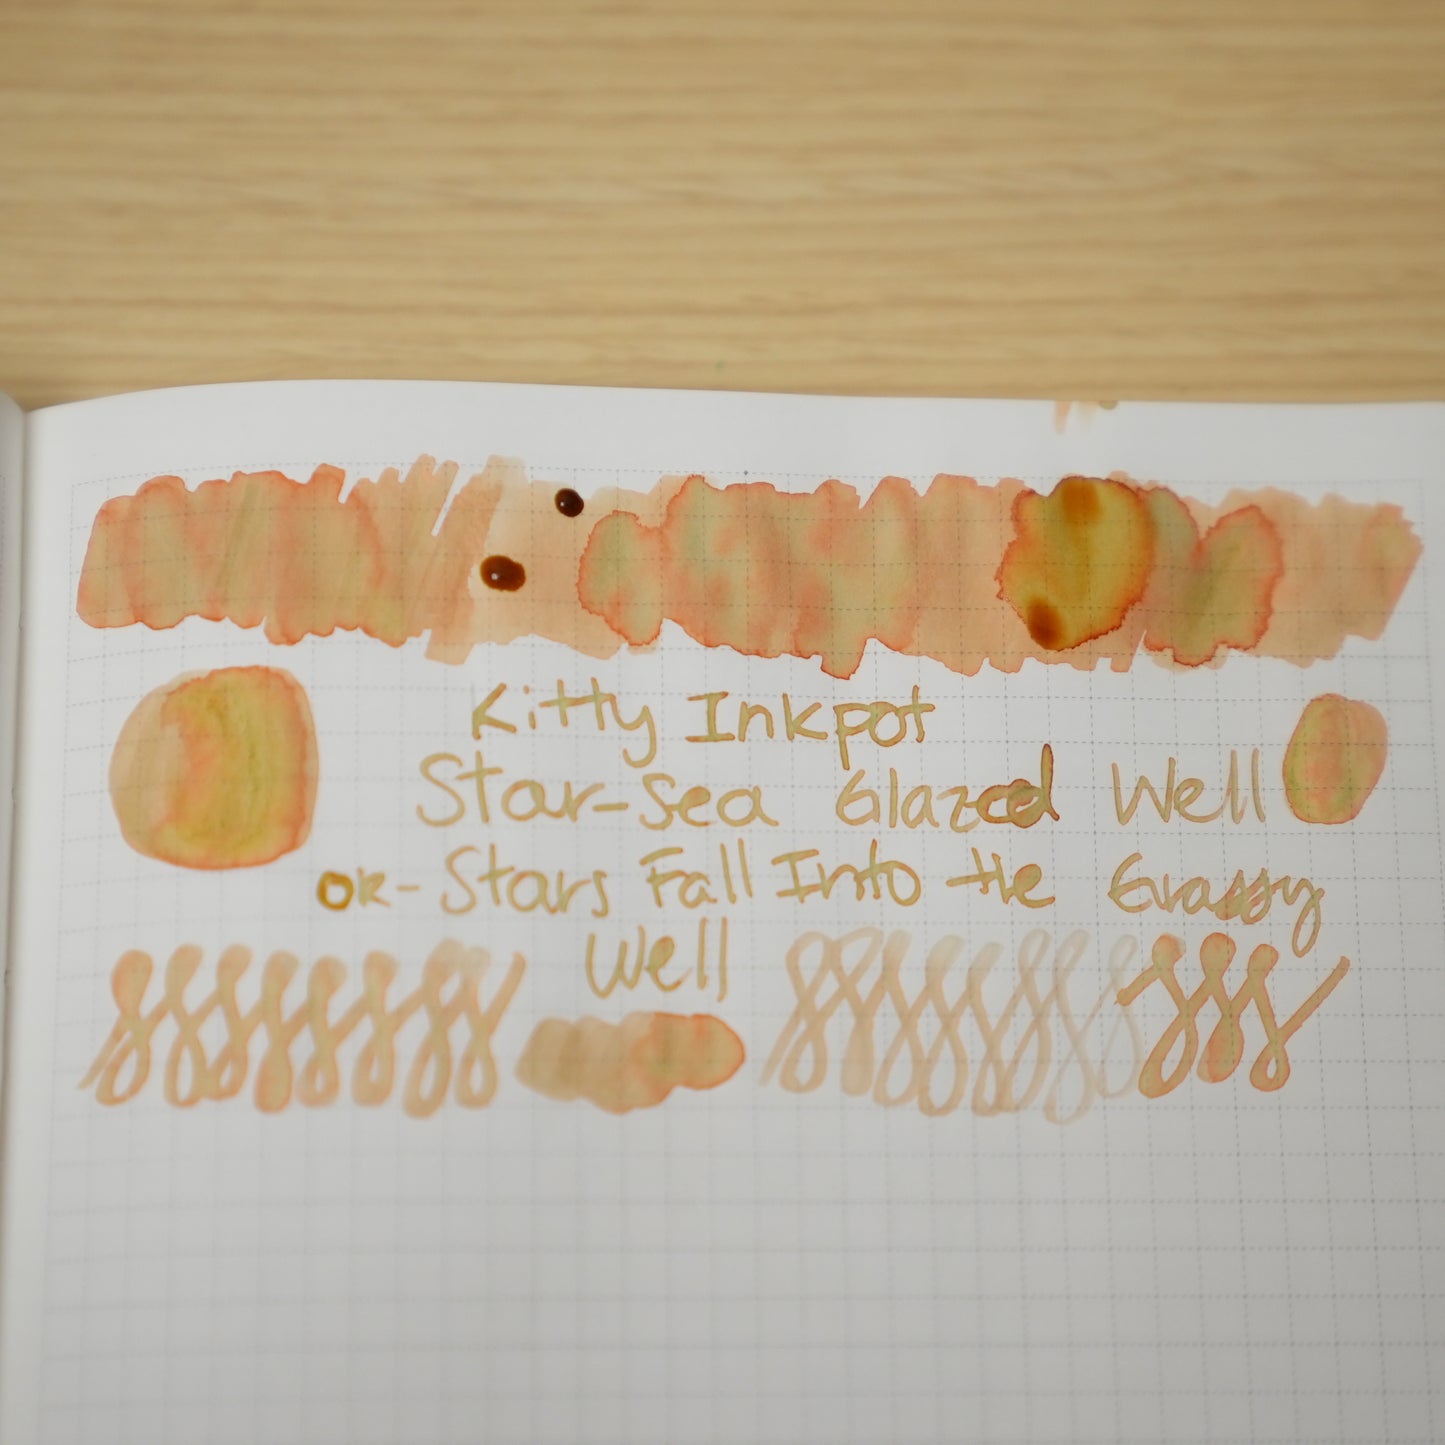 Kitty Inkpot
Star-Sea Glazed Well
or - Stars Fall Into the Grassy
Well